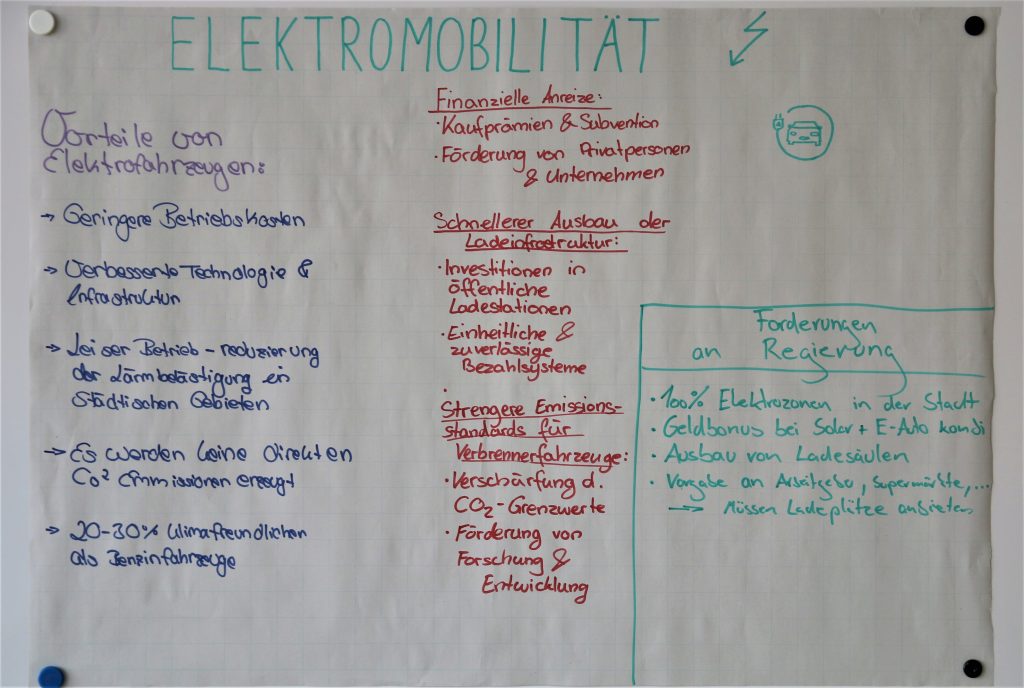 ELEKTROMOBILITÄT
Vorteile von
Elektrofahrzeugen:
→ Geringere Betriebskosten
→ Verbesserte Technologie &
Infrastruktur
→ Leiser Betrieb - reduzierung
der Lärmbelästigung in
Städtischen Gebieten
→ Es werden keine direkten
Co² Emmissionen erzeugt
→ 20-30% klimafreundlicher
als Benzinfahrzeuge
Finanzielle Anreize:
· Kaufprämien & Subvention
· Förderung von Privatpersonen
& Unternehmen
Schnellerer Ausbau der
Ladeinfrastruktur:
· Investitionen in
öffentliche
Ladestationen
· Einheitliche &
zuverlässige
Bezahlsysteme
Strengere Emissions-
standards für
Verbrennerfahrzeuge:
· Verschärfung d.
CO₂-Grenzwerte
· Förderung von
Forschung &
Entwicklung
Forderungen
an Regierung
· 100% Elektrozonen in der Stadt
· Geldbonus bei Solar + E-Auto kombi
· Ausbau von Ladesäulen
· Vorgabe an Arbeitgeber, Supermärkte, ...
→ Müssen Ladeplätze anbieten